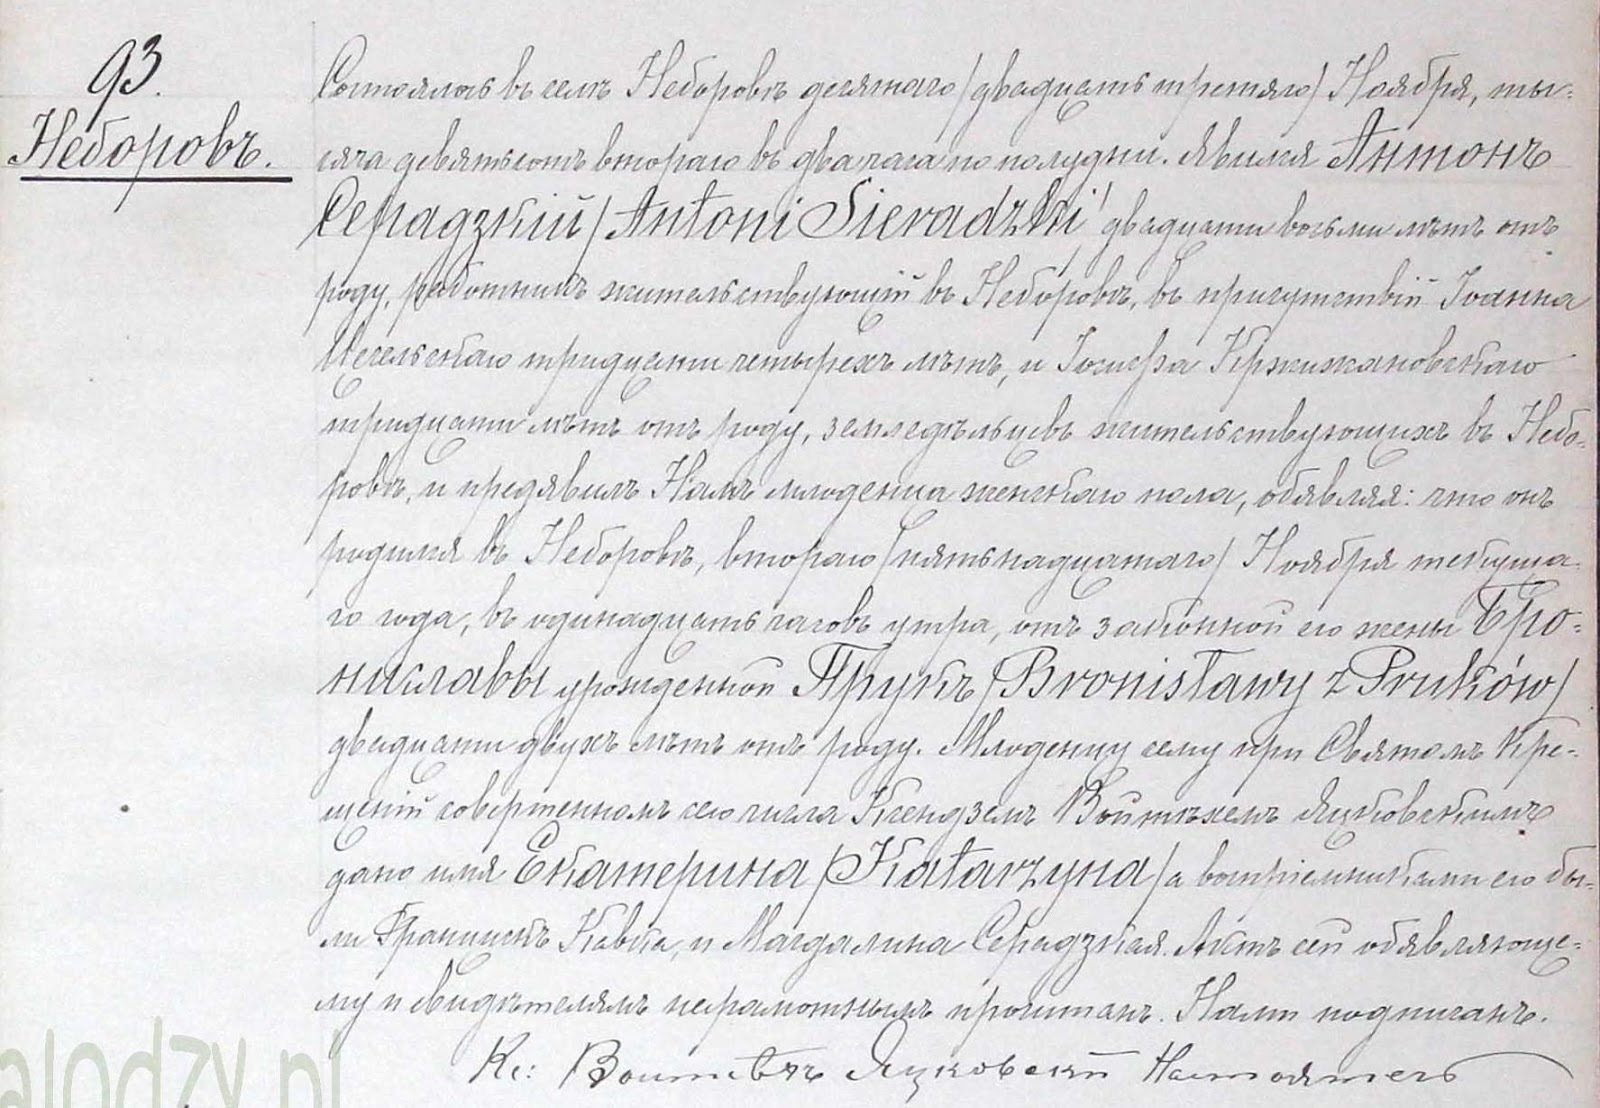 93.
Неборовъ.
Состоялось въ селѣ Неборовѣ десятаго /двадцать третяго/ Ноября, ты-
сяча девятьсотъ втораго въ два часа по полудни. Явился Антонъ
Серадзкій /Antoni Sieradzki/ двадцати восьми лѣтъ отъ
роду, работникъ жительствующій въ Неборовѣ, въ присутствій Іоанна
Цесельскаго тридцати четырехъ лѣтъ, и Іосифа Кржижановскаго
тридцати лѣтъ отъ роду, земледѣльцевъ жительствующихъ въ Небо-
ровѣ, и предявилъ Намъ младенца женскаго пола, обявляя: что онъ
родился въ Неборовѣ, втораго /пятьнадцатаго/ Ноября текуща-
го года, въ одинадцать часовъ утра, отъ законной его жены Бро-
ниславы урожденной Прукъ /Bronisławy z Pruków/
двадцати двухъ лѣтъ отъ роду. Младенцу сему при Святомъ Кре-
щеній совершенномъ сего числа Ксендземъ Войтѣхемъ Яцковскимъ
дано имя Екатерина /Katarzyna/ а воспріемниками его бы-
ли Францишкъ Кавка, и Магдалина Серадзкая. Актъ сей обявляюще-
му и свидѣтелямъ неграмотнымъ прочитанъ. Нами подписанъ.
Кс: Яцковскій Настоятель
alodzy.pl